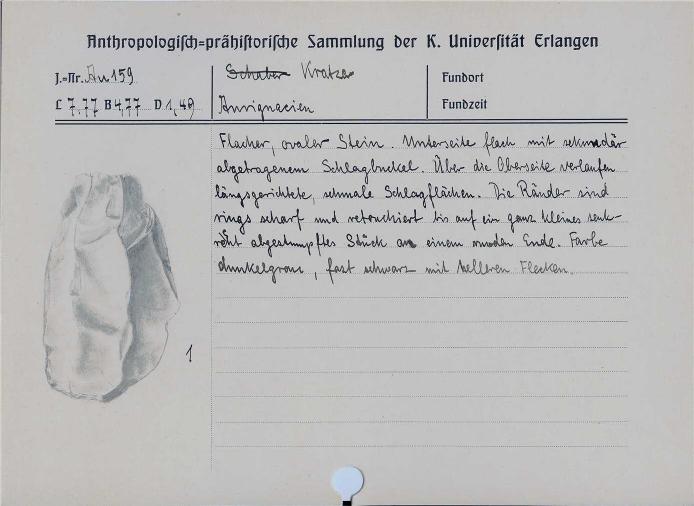 Anthropologisch=prähistorische Sammlung der K. Universität Erlangen
J.=Nr. Au 159
Schaber Kratzer
Fundort
L 7,77 B 4,77 D 1,49
Aurignacien
Fundzeit
Flacher, ovaler Stein. Unterseite flach mit sekundär
abgetragenem Schlagbuckel. Über die Oberseite verlaufen
längsgerichtete, schmale Schlagflächen. Die Ränder sind
rings scharf und retouchiert bis auf ein ganz kleines senk-
recht abgestumpftes Stück an einem runden Ende. Farbe
dunkelgrau, fast schwarz mit helleren Flecken.
1